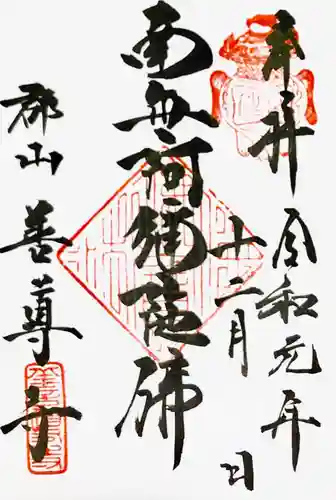 奉拝 令和元年
十二月 日
南無阿彌陀佛
郡山 善導寺